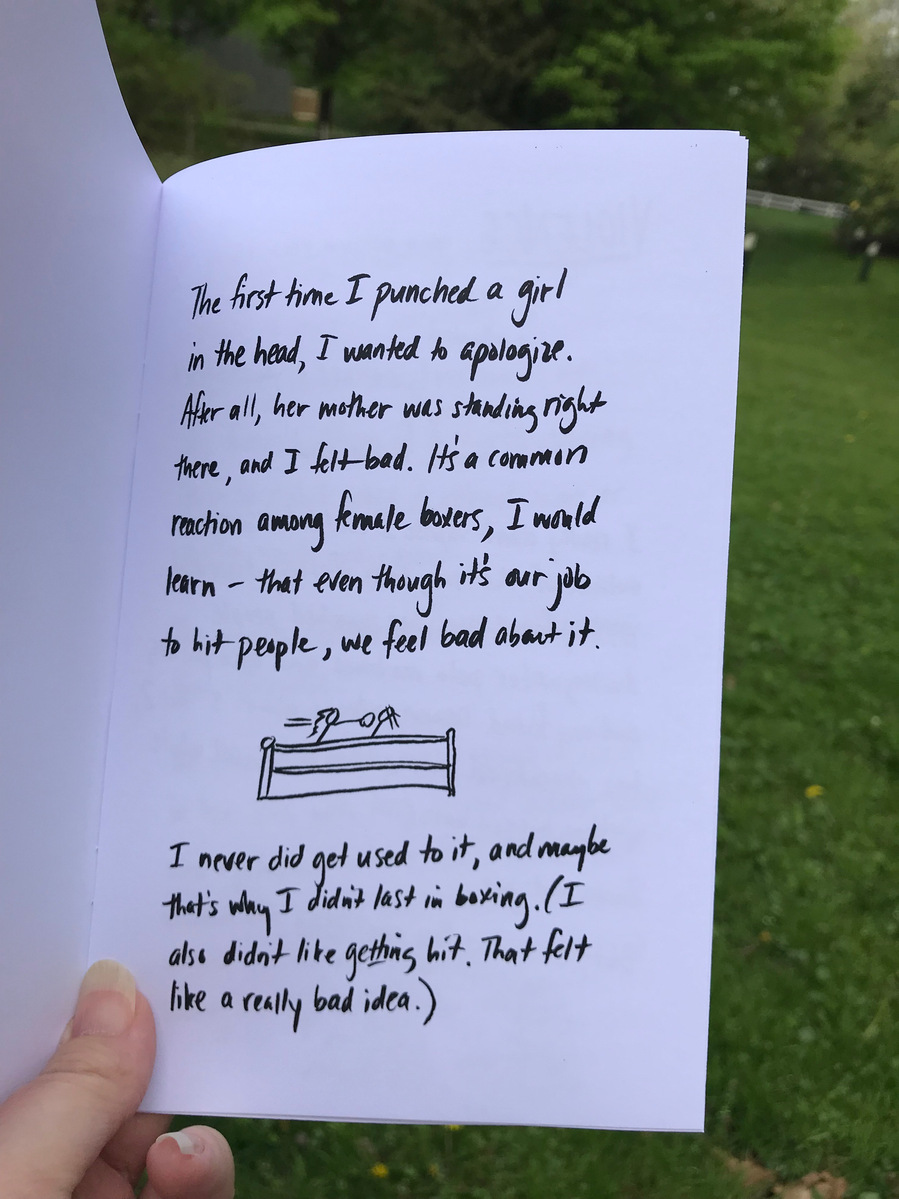 The first time I punched a girl
in the head, I wanted to apologize.
After all, her mother was standing right
there, and I felt bad. It's a common
reaction among female boxers, I would
learn – that even though it's our job
to hit people, we feel bad about it.
I never did get used to it, and maybe
that's why I didn't last in boxing. (I
also didn't like getting hit. That felt
like a really bad idea.)